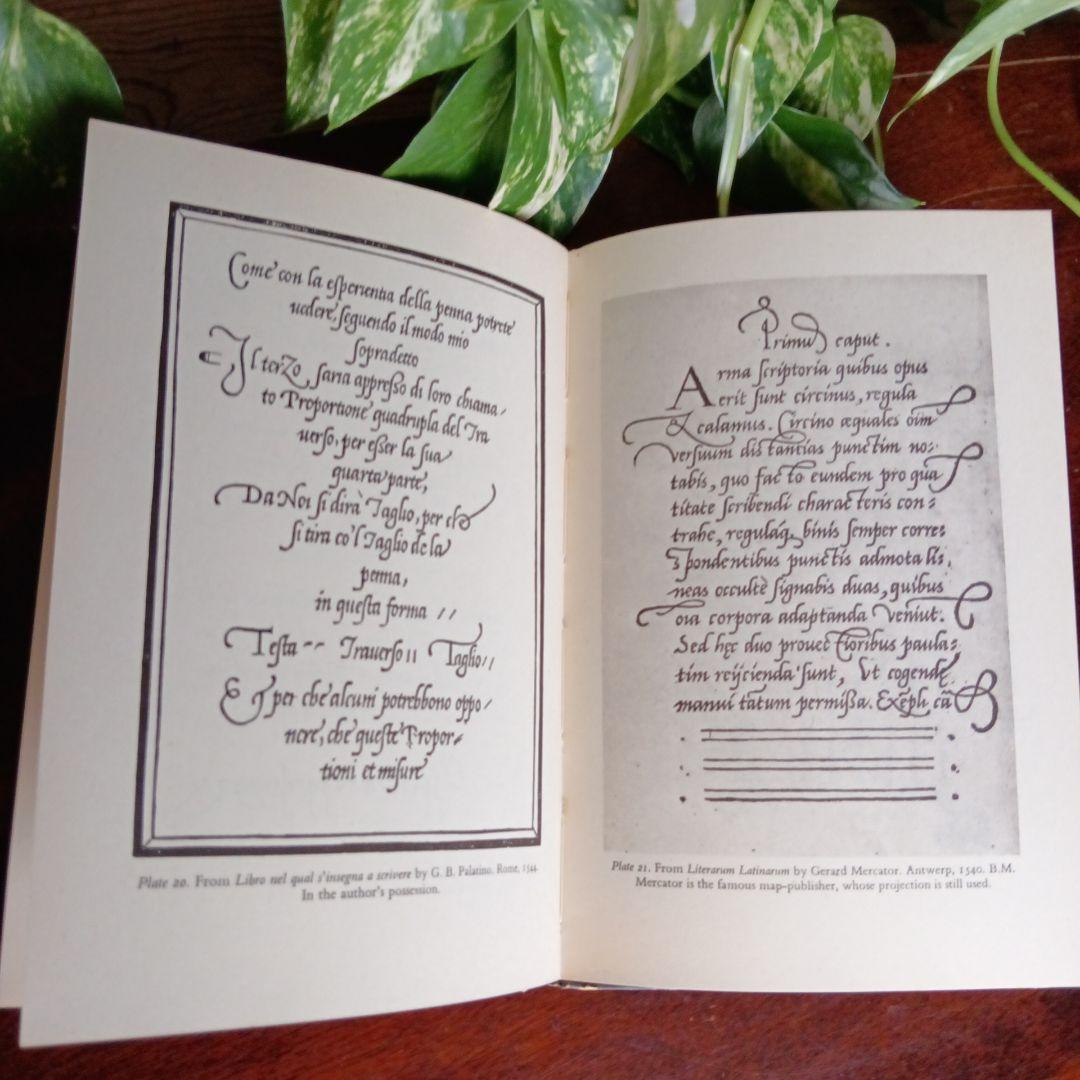 Come con la esperientia della penna potrete
uedere, seguendo il modo mio
sopradetto
Il terzo, saria appresso di loro chiama/
to Proportione quadrupla del Tra
uerso, per esser la sua
quarta parte,
Da Noi si dirà Taglio, per che
si tira co'l Taglio de la
penna,
in questa forma //
Testa -- Trauerso // Taglio //
Et per che alcuni potrebbono oppo/
nere, che queste Propor/
tioni et misure
Plate 20. From Libro nel qual s'insegna a scrivere by G. B. Palatino. Rome, 1544.
In the author's possession.
Primum caput.
Arma scriptoria quibus opus
erit sunt circinus, regula
& calamus. Circino æquales oim
versuum distantias punctim no:
tabis, quo facto eundem pro quã
titate scribendi characteris con:
trahe, regulaq, binis semper corres
pondentibus punctis admota li:
neas occultè signabis duas, quibus
oia corpora adaptanda veniũt.
Sed hęc duo prouectioribus paula:
tim reijcienda sunt, Vt cogendę
manui tãtum permissa. Exẽpli cã
Plate 21. From Literarum Latinarum by Gerard Mercator. Antwerp, 1540. B.M.
Mercator is the famous map-publisher, whose projection is still used.